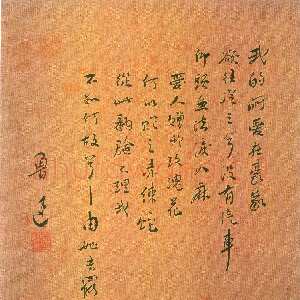 我的所愛在豪家
欲往從之兮沒有汽車
仰頭無法淚如麻
愛人贈我玫瑰花
何以贈之赤練蛇
從此翻臉不理我
不知何故兮—由她去罷
魯迅